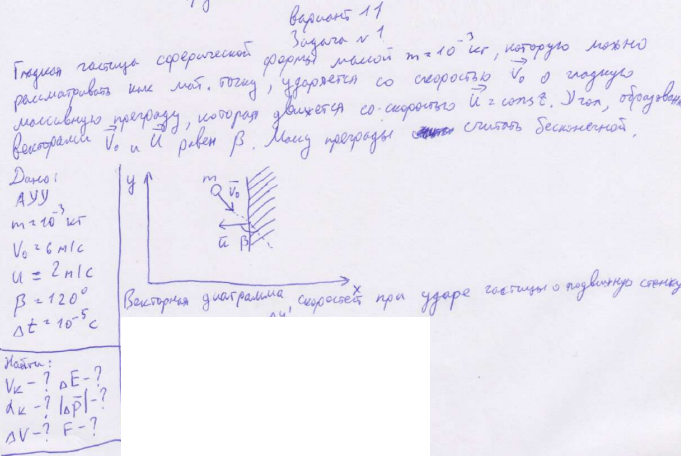 Вариант 11
Задача №1
Гладкая частица сферической формы массой m = 10⁻³ кг, которую можно
рассматривать как мат. точку, ударяется со скоростью V₀ о гладкую
массивную преграду, которая движется со скоростью U = const. Угол, образован
векторами V₀ и U равен β. Массу преграды считать бесконечной.
Дано:
АУУ
m = 10⁻³ кг
V₀ = 6 м/с
U = 2 м/с
β = 120°
Δt = 10⁻⁵ с
Найти:
Vк - ? ΔE - ?
αк - ? |Δp̄| - ?
ΔV - ? F - ?
y
m
V̄₀
ū β
x
Векторная диаграмма скоростей при ударе частицы о подвижную стенку